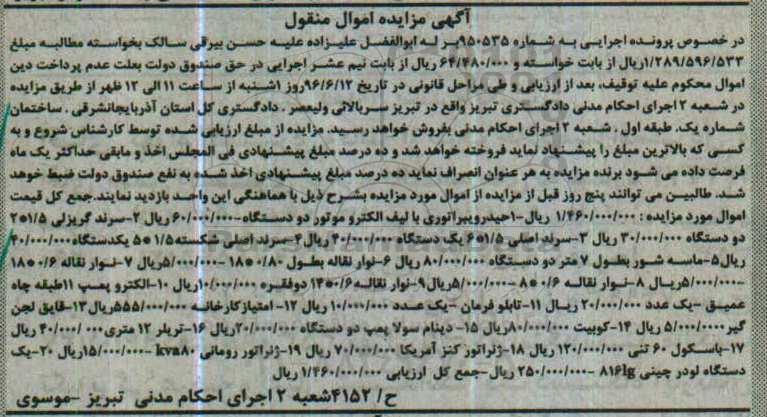 آگهی مزایده اموال منقول
در خصوص پرونده اجرایی به شماره ۹۵۰۵۳۵بر له ابوالفضل علیزاده علیه حسن بیرقی سالک بخواسته مطالبه مبلغ
۱/۲۸۹/۵۹۶/۵۳۳ریال از بابت خواسته و ۶۴/۴۸۰/۰۰۰ ریال از بابت نیم عشر اجرایی در حق صندوق دولت بعلت عدم پرداخت دین
اموال محکوم علیه توقیف، بعد از ارزیابی و طی مراحل قانونی در تاریخ ۹۶/۶/۱۲روز ۱شنبه از ساعت ۱۱ الی ۱۲ ظهر از طریق مزایده
در شعبه ۲ اجرای احکام مدنی دادگستری تبریز واقع در تبریز سربالائی ولیعصر ، دادگستری کل استان آذربایجانشرقی ، ساختمان
شماره یک، طبقه اول ، شعبه ۲ اجرای احکام مدنی بفروش خواهد رسید. مزایده از مبلغ ارزیابی شده توسط کارشناس شروع و به
کسی که بالاترین مبلغ را پیشنهاد نماید فروخته خواهد شد و ده درصد مبلغ پیشنهادی فی المجلس اخذ و مابقی حداکثر یک ماه
فرصت داده می شود برنده مزایده به هر عنوان انصراف نماید ده درصد مبلغ پیشنهادی اخذ شده به نفع صندوق دولت ضبط خوهد
شد. طالبین می توانند پنج روز قبل از مزایده از اموال مورد مزایده بشرح ذیل با هماهنگی این واحد بازدید نمایند.جمع کل قیمت
اموال مورد مزایده : ۱/۴۶۰/۰۰۰/۰۰۰ ریال -۱حیدروویبراتوری با لیف الکترو موتور دو دستگاه-۶۰/۰۰۰/۰۰۰ ریال ۲-سرند گریزلی ۱/۵*۲
دو دستگاه ۳۰/۰۰۰/۰۰۰ ریال ۳-سرند اصلی ۱/۵*۶ یک دستگاه ۴۰/۰۰۰/۰۰۰ ریال۴-سرند اصلی شکسته۱/۵*۵ یکدستگاه۴۰/۰۰۰/۰۰۰
ریال۵-ماسه شور بطول ۷ متر دو دستگاه ۸۰/۰۰۰/۰۰۰ ریال ۶-نوار نقاله بطول ۰/۸۰*۱۸ -۵/۰۰۰/۰۰۰ریال ۷-نوار نقاله ۰/۶*۱۸
-۵/۰۰۰/۰۰۰ریال ۸-نوار نقاله ۰/۶*۸ -۵/۰۰۰/۰۰۰ریال۹-نوار نقاله۰/۶*۱۴ دوفقره ۱۰/۰۰۰/۰۰۰ریال ۱۰-الکترو پمپ ۱۱طبقه چاه
عمیق -یک عدد ۲۰/۰۰۰/۰۰۰ ریال ۱۱-تابلو فرمان -یک عدد ۱۰/۰۰۰/۰۰۰ ریال ۱۲- امتیازکارخانه ۵۵۵/۰۰۰/۰۰۰ریال۱۳-قایق لجن
گیر ۵/۰۰۰/۰۰۰ ریال ۱۴-کوبیت ۸۰/۰۰۰/۰۰۰ریال ۱۵- دینام سولا پمپ دو دستگاه ۲۰/۰۰۰/۰۰۰ریال ۱۶-تریلر ۱۲ متری۴۰/۰۰۰/۰۰۰ ریال
۱۷-باسکول ۶۰ تنی ۱۲۰/۰۰۰/۰۰۰ ریال ۱۸-ژنراتور کنز آمریکا ۷۰/۰۰۰/۰۰۰ ریال ۱۹-ژنراتور رومانی kva۸۰ -۱۵/۰۰۰/۰۰۰ریال ۲۰-یک
دستگاه لودر چینی ۸۱۶lg -۲۵۰/۰۰۰/۰۰۰ ریال-جمع کل ارزیابی ۱/۴۶۰/۰۰۰/۰۰۰ ریال
ح/ ۴۱۵۲شعبه ۲ اجرای احکام مدنی تبریز -موسوی